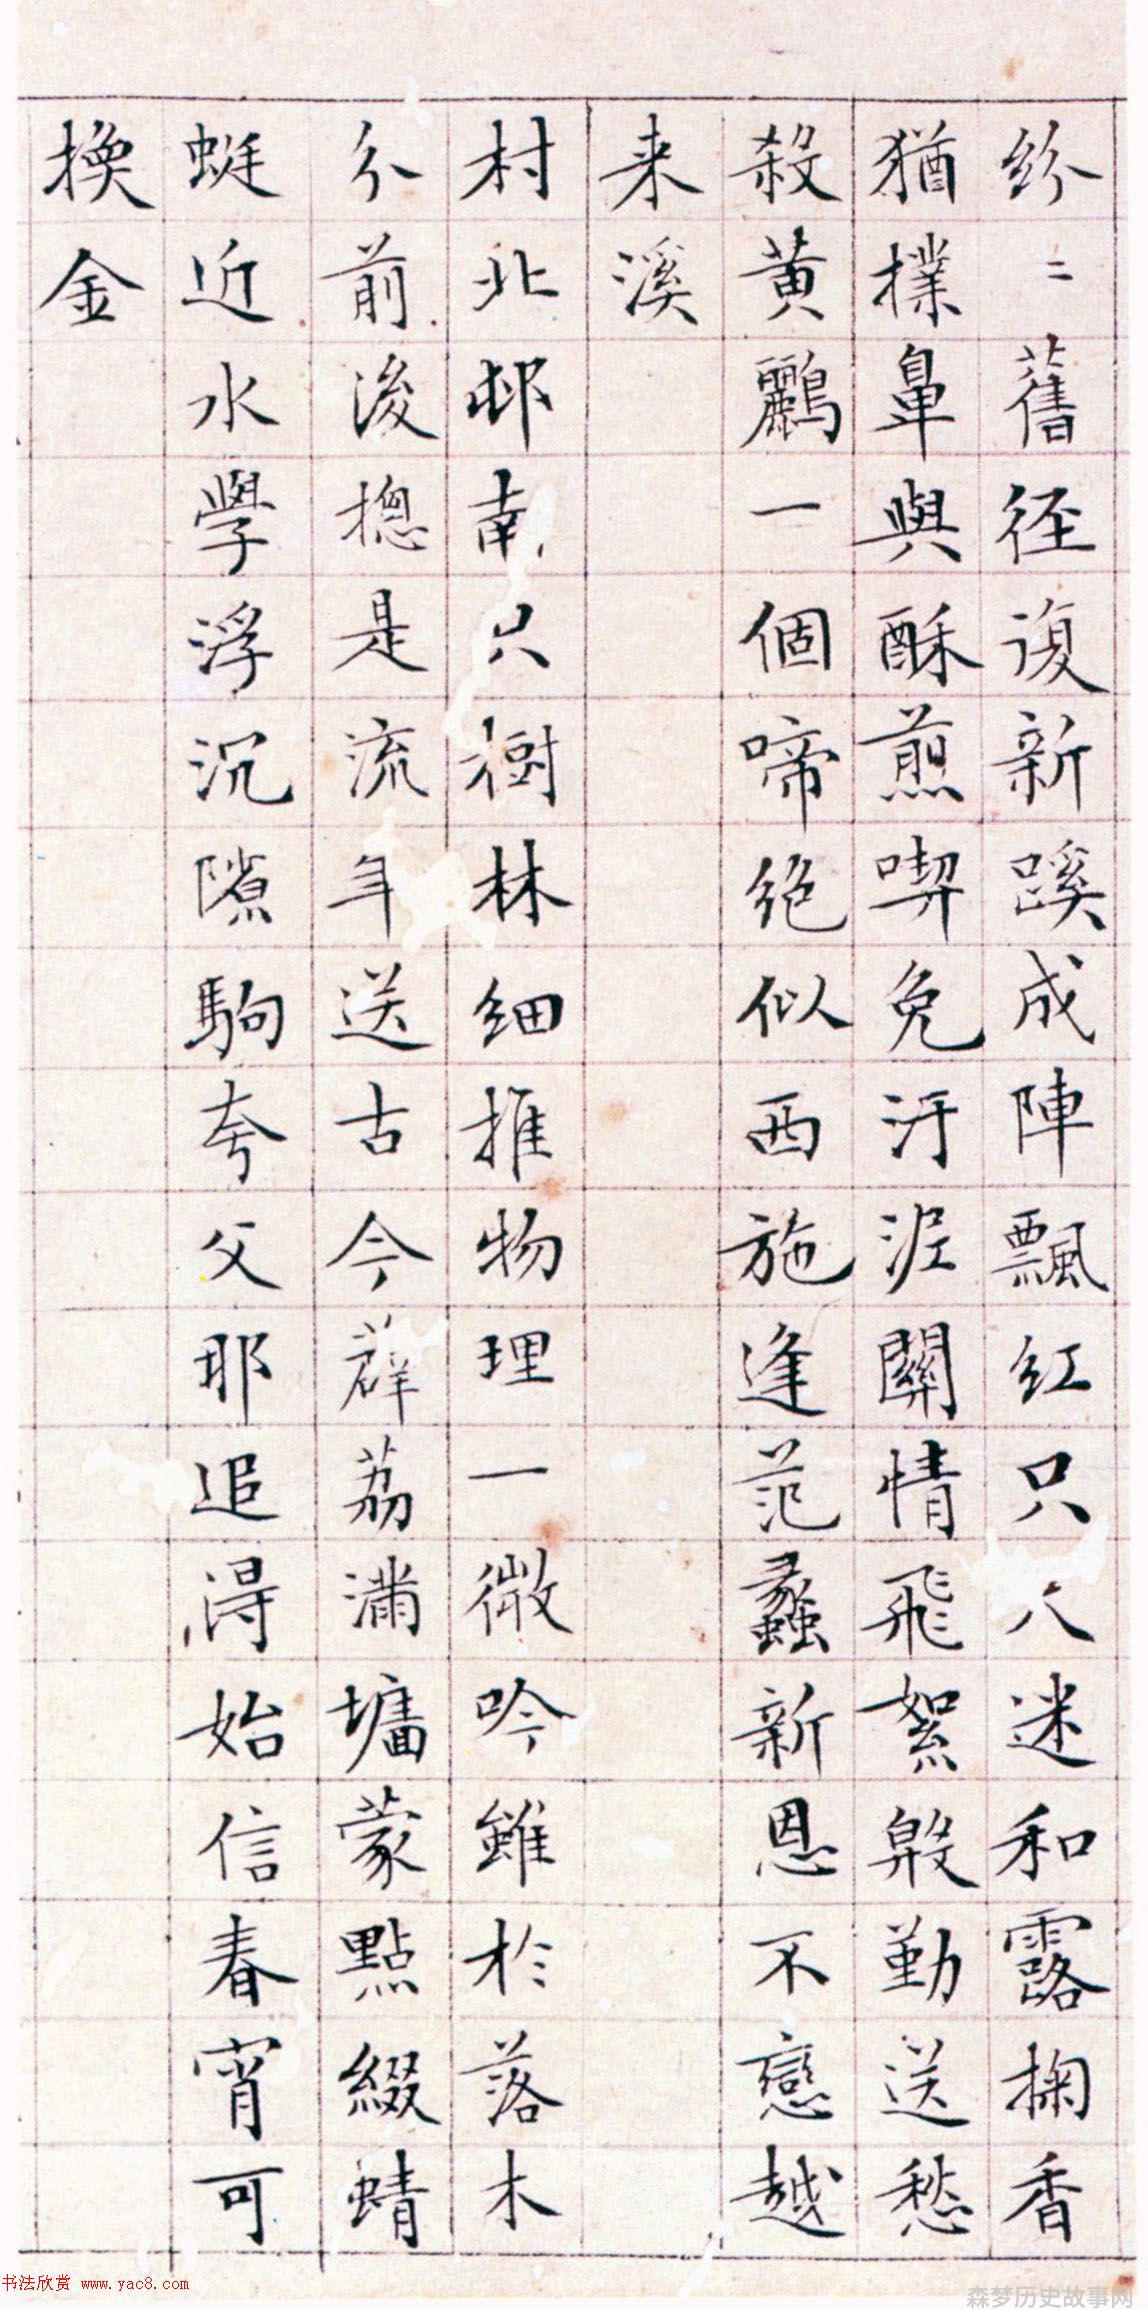 紛〻舊徑復新蹊成陣飄紅只迷和露掬香
猶撲鼻與酥煎喫免汙泥關情飛絮殷勤送愁
殺黃鸝一個啼絕似西施逢范蠡新恩不戀越
来溪
村北邨南只樹林細推物理一微吟雖於落木
分前後摠是流年送古今薜荔滿墻蒙點綴蜻
蜓近水學浮沉隙駒夸父耶追得始信春宵可
換金
书法欣赏 www.yac8.com
森梦历史故事网